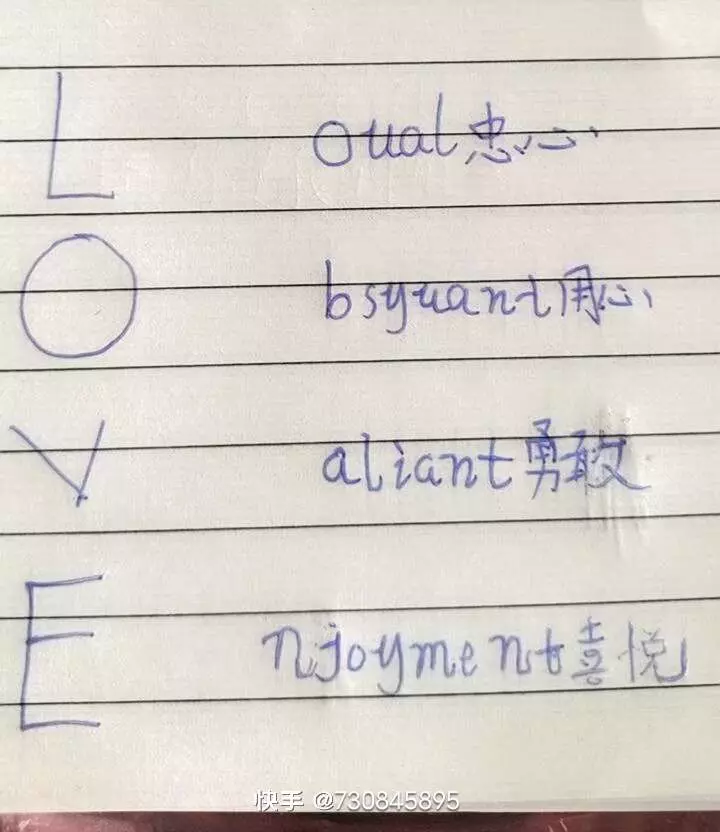 L oual忠心
O bsyuant用心
V aliant勇敢
E njoyment喜悦
快手 @730845895